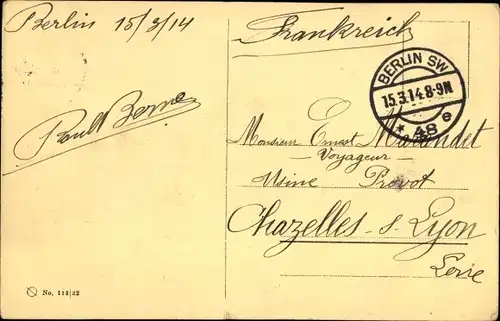 Berlin 15/3/14
Frankreich
BERLIN SW
15.3.14.8-9N
* 48 e
Monsieur Ernest
Voyageur
Usine Provot
Chazelles-s-Lyon
Loire
No. 113/22